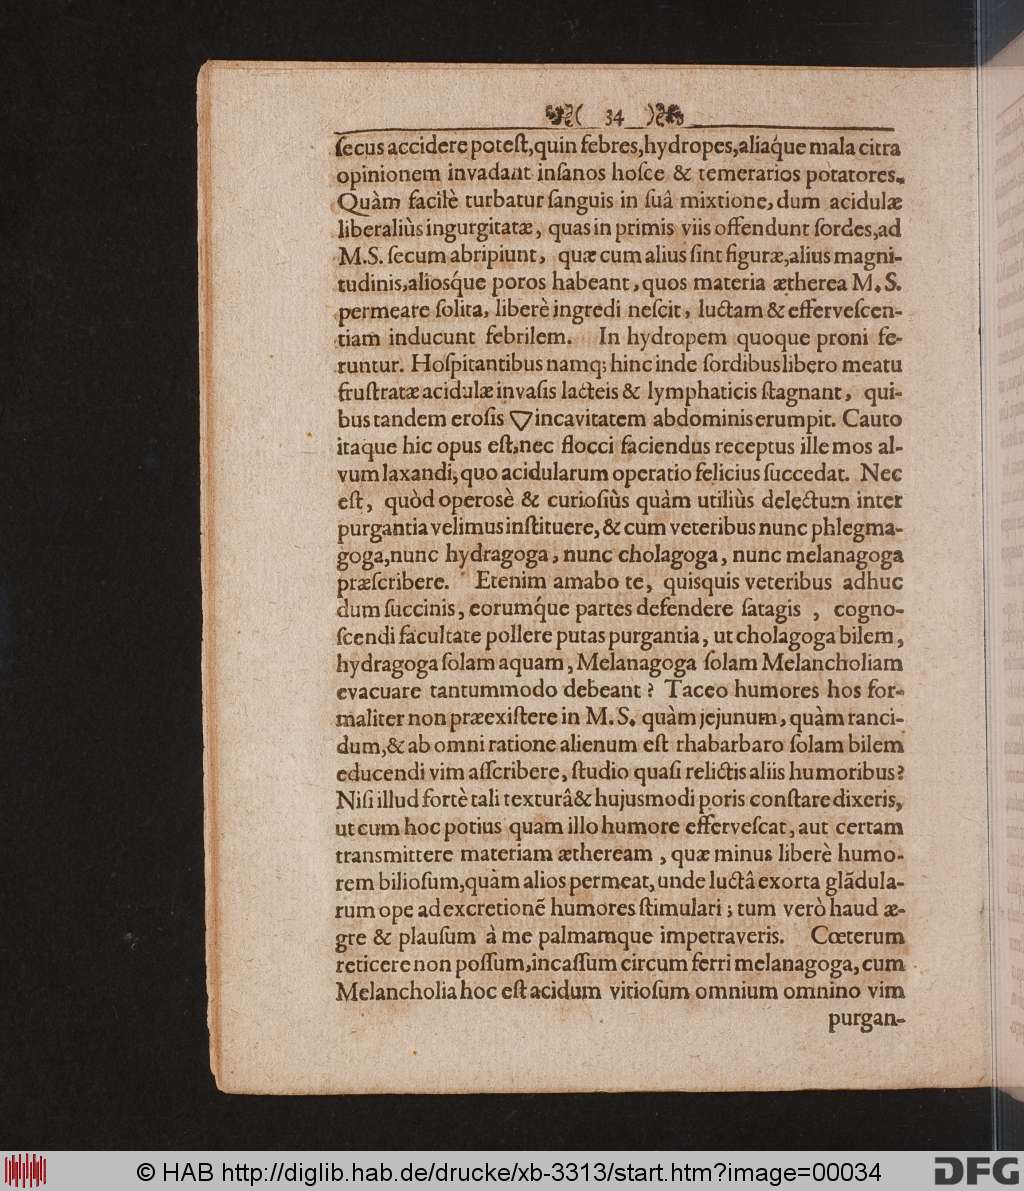 ( 34 )
ſecus accidere poteſt,quin febres,hydropes,aliaq́ue mala citra
opinionem invadant inſanos hoſce & temerarios potatores.
Quàm facilè turbatur ſanguis in ſuâ mixtione, dum acidulæ
liberaliùs ingurgitatæ, quas in primis viis offendunt ſordes,ad
M.S. ſecum abripiunt, quæ cum alius ſint figuræ,alius magni-
tudinis,aliosq́ue poros habeant, quos materia ætherea M.S.
permeare ſolita, liberè ingredi neſcit, luctam & efferveſcen-
tiam inducunt febrilem. In hydropem quoque proni fe-
runtur. Hoſpitantibus namq; hinc inde ſordibus libero meatu
fruſtratæ acidulæ in vaſis lacteis & lymphaticis ſtagnant, qui-
bus tandem eroſis ▽ in cavitatem abdominis erumpit. Cauto
itaque hic opus eſt,nec flocci faciendus receptus ille mos al-
vum laxandi, quo acidularum operatio felicius ſuccedat. Nec
eſt, quòd operosè & curioſiùs quàm utiliùs delectum inter
purgantia velimus inſtituere, & cum veteribus nunc phlegma-
goga,nunc hydragoga, nunc cholagoga, nunc melanagoga
præſcribere. Etenim amabo te, quisquis veteribus adhuc
dum ſuccinis, eorumq́ue partes defendere ſatagis, cogno-
ſcendi facultate pollere putas purgantia, ut cholagoga bilem,
hydragoga ſolam aquam, Melanagoga ſolam Melancholiam
evacuare tantummodo debeant? Taceo humores hos for-
maliter non præexiſtere in M.S. quàm jejunum, quàm ranci-
dum,& ab omni ratione alienum eſt rhabarbaro ſolam bilem
educendi vim aſſcribere, ſtudio quaſi relictis aliis humoribus?
Niſi illud fortè tali texturâ & hujusmodi poris conſtare dixeris,
ut cum hoc potius quam illo humore efferveſcat, aut certam
transmittere materiam æthereām, quæ minus liberè humo-
rem bilioſum,quàm alios permeat, unde luctâ exorta glãdula-
rum ope ad excretionẽ humores ſtimulari; tum verò haud æ-
gre & plauſum à me palmamque impetraveris. Cœterum
reticere non poſſum,incaſſum circum ferri melanagoga, cum
Melancholia hoc eſt acidum vitioſum omnium omnino vim
purgan-
© HAB http://diglib.hab.de/drucke/xb-3313/start.htm?image=00034
DFG